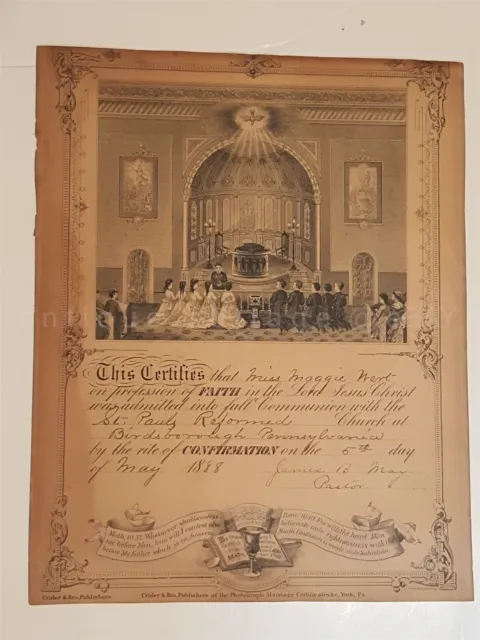 This Certifies that Miss Maggie Wert
on profession of FAITH in the Lord Jesus Christ
was admitted into full Communion with the
St. Pauls Reformed Church at
Birdsborough Pennsylvania
by the rite of CONFIRMATION on the 5th day
of May 1888 James May
Pastor
Math. 10.32. Whosoever
me before Men, him will I confess also
before My Father which is in heaven
Rom. 10.10. For with the heart Man
believeth unto righteousness with the
Mouth Confession is made unto Salvation
Crider & Bro, Publishers
Crider & Bro, Publishers of the Photograph Marriage Certificates &c, York, Pa.